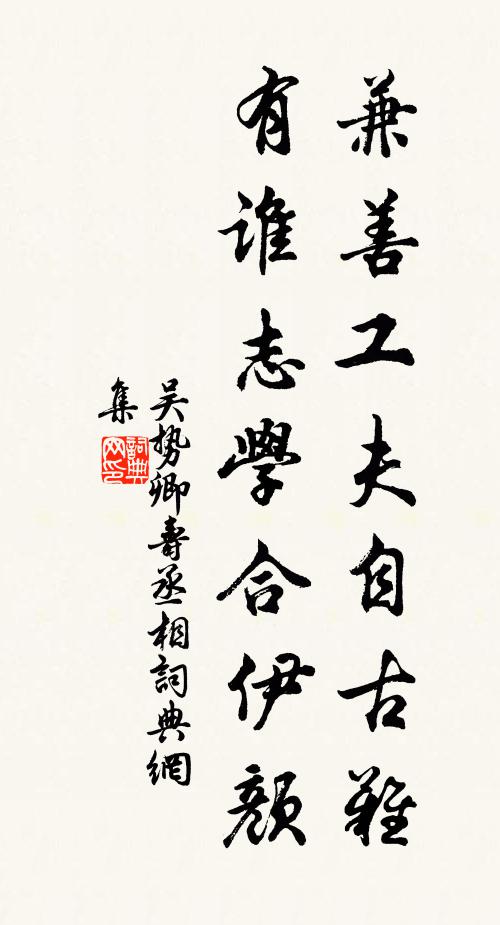 兼善工夫自古難
有誰志學合伊顏
吳勢卿壽丞相詞典網
集
詞典網印